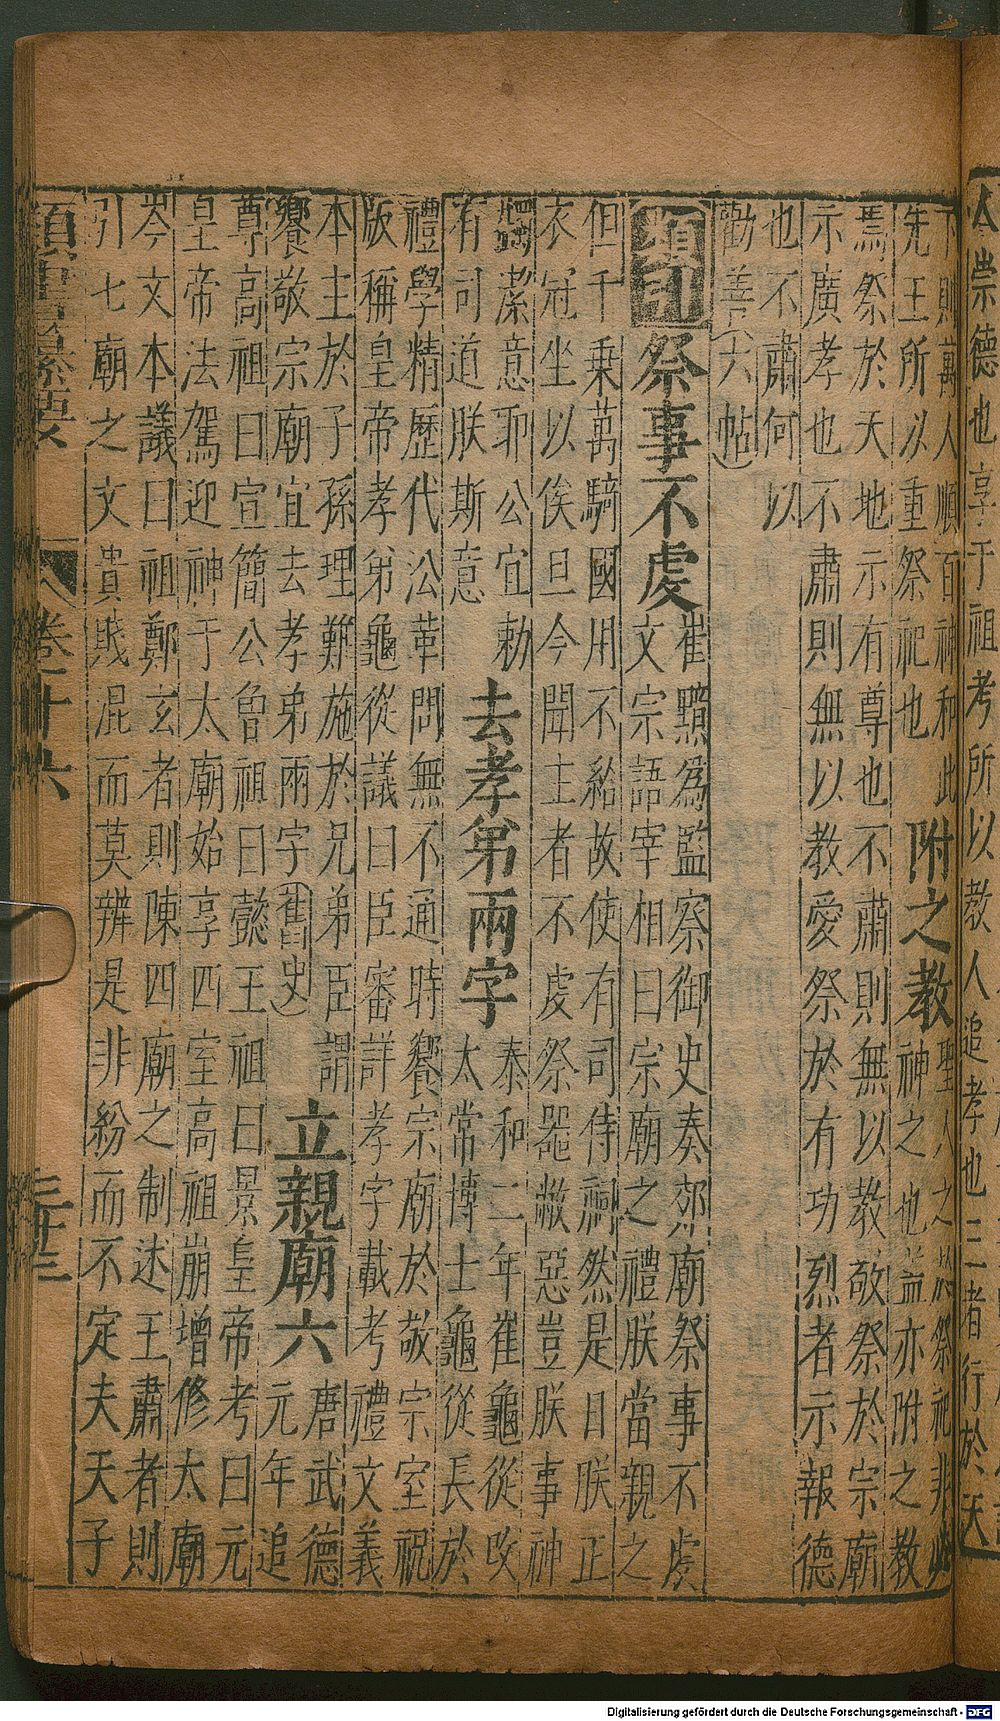 人崇德也享于祖考所以教人追孝也三者行於天
下則萬人順百神和此
先王所以重祭祀也
附之教
聖人之於祭祀非必
神之也蓋亦附之教
焉祭於天地示有尊也不肅則無以教敬祭於宗廟
示廣孝也不肅則無以教愛祭於有功烈者示報德
也不肅何以
勸善(六帖)
類引
祭事不虔
崔黯為監察御史奏郊廟祭事不虔
文宗語宰相曰宗廟之禮朕當親之
但千乗萬騎國用不給故使有司侍祠然是日朕正
衣冠坐以俟旦今聞主者不虔祭器敝惡豈朕事神
蠲潔意耶公宜勅
有司道朕斯意
去孝弟兩字
泰和二年崔龜從攺
太常博士龜從長於
禮學精歷代沿革問無不通時饗宗廟於敬宗室祝
版稱皇帝孝弟龜從議曰臣審詳孝字載考禮文義
本主於子孫理難施於兄弟臣謂
饗敬宗廟宜去孝弟兩字(舊史)
立親廟六
唐武德
元年追
尊高祖曰宣簡公曾祖曰懿王祖曰景皇帝考曰元
皇帝法駕迎神于太廟始享四室高祖崩增修太廟
岑文本議曰祖鄭玄者則陳四廟之制述王肅者則
引七廟之文貴賤混而莫辨是非紛而不定夫天子
類書纂要
卷二十六
Digitalisierung gefördert durch die Deutsche Forschungsgemeinschaft - DFG